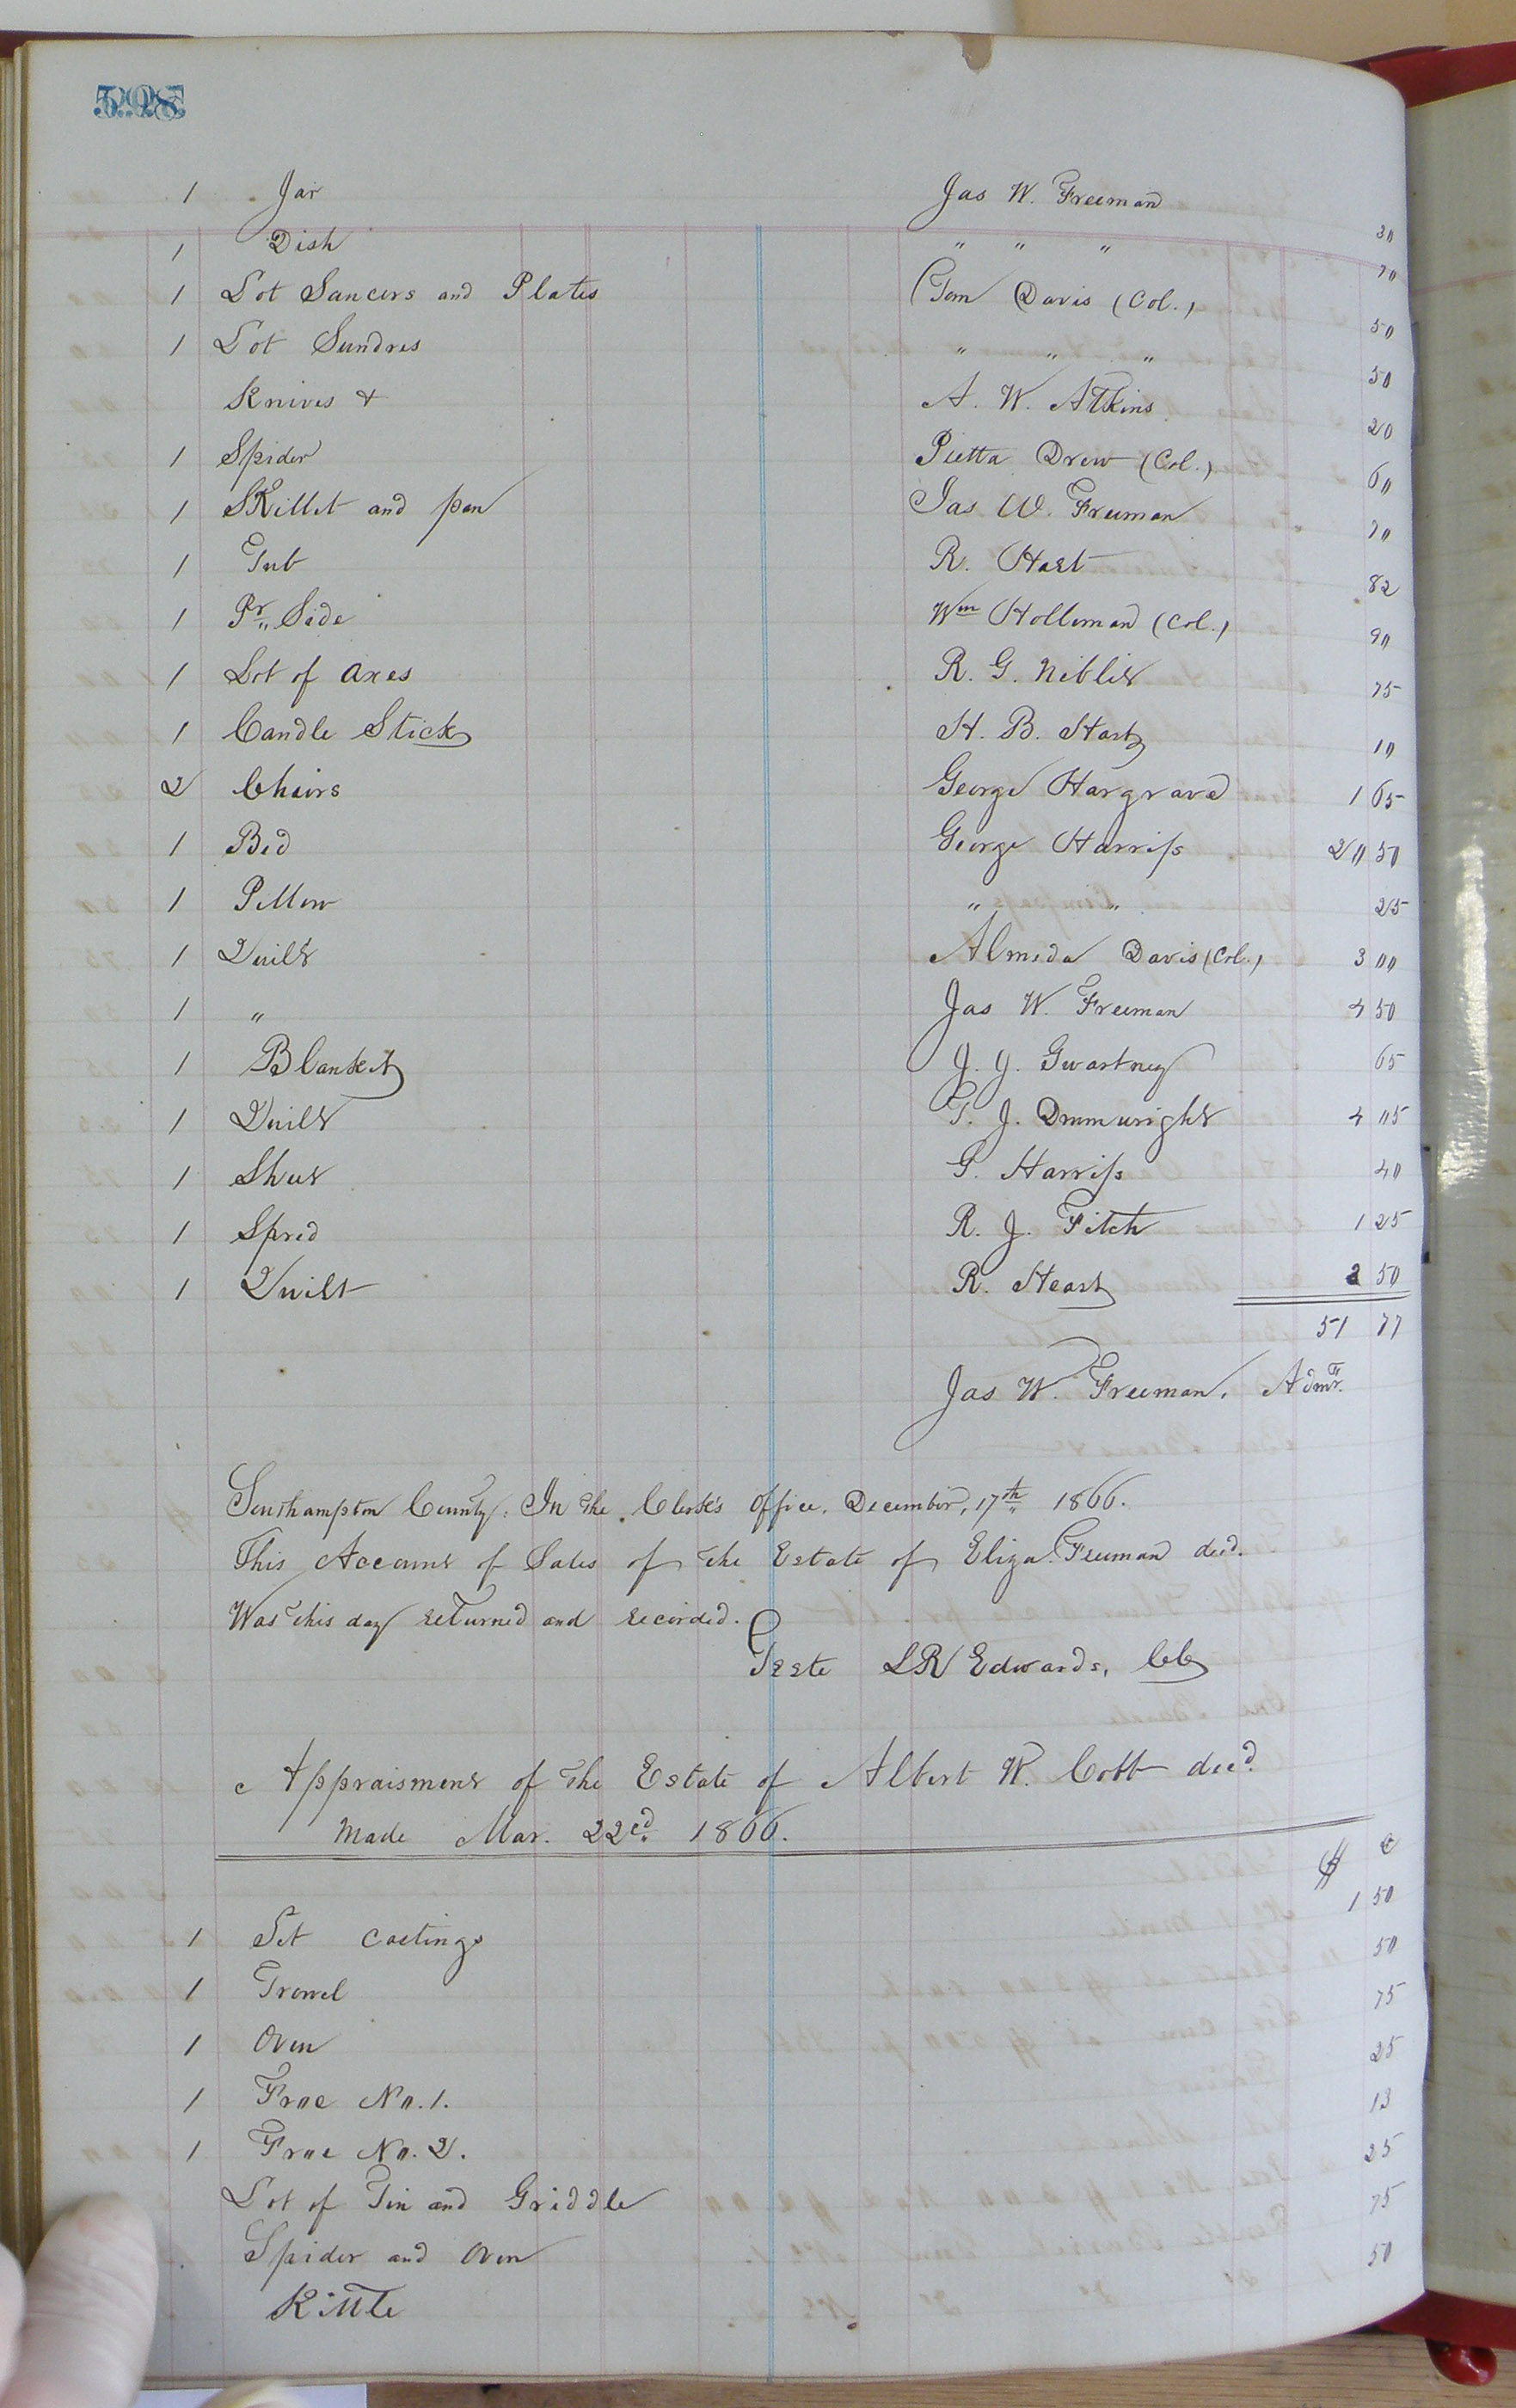 1 Jar Jas W. Freeman 30
1 Dish " " " 70
1 Lot Saucers and Plates Tom Davis (Col.) 50
1 Lot Sundres " " " 50
Knives + A. W. Atkins 20
1 Spider Pietta Drew (Col.) 60
1 Skillet and pan Jas W. Freeman 70
1 Tub R. Hart 82
1 Pr. Side Wm Holleman (Col.) 90
1 Lot of axes R. G. Niblet 75
1 Candle Stick H. B. Hart 10
2 Chairs George Hargrave 1 65
1 Bed George Harriss 20 50
1 Pillow " " 25
1 Quilt Almeda Davis (Col.) 3 00
1 " Jas W. Freeman 4 50
1 Blanket J. J. Gwartney 65
1 Quilt T. J. Drumwright 4 05
1 Sheet G. Harriss 40
1 Spred R. J. Fitch 1 25
1 Quilt R. Heart 2 50
51 77
Jas W. Freeman, Admr.
Southampton County: In the Clerk's Office, December, 17th 1866.
This Account of Sales of the Estate of Eliza. Freeman decd.
Was this day returned and recorded.
Teste LR Edwards, CC
Appraisment of the Estate of Albert W. Cobb decd.
Made Mar. 22ed. 1866.
$ c
1 Set Castings 1 50
1 Trowel 50
1 Oven 75
1 Froe No. 1. 25
1 Froe No. 2. 13
Lot of Tin and Griddle 25
Spider and Oven 75
Kittle 50